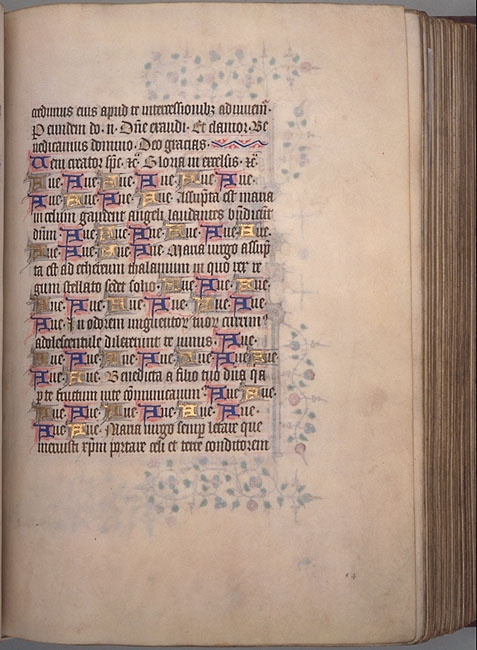 cedimus eius apud te intercessionibz adiuuem̄.
P eundem do. n. Dn̄e exaudi. Et clamor. Be
nedicamus domino. Deo gracias.
Ueni creator sp̄c. ⁊c̄ Gloria in excelsis. ⁊c̄
Aue. Aue. Aue. Aue. Aue. Aue.
Aue. Aue. Aue. Aue. Assūpta est maria
in celum gaudent angeli laudantes bn̄dicūt
dūm. Aue. Aue. Aue. Aue. Aue. Aue.
Aue. Aue. Aue. Aue. Maria uirgo assūp
ta est ad ethereum thalamum in quo rex re
gum stellato sedet solio. Aue. Aue. Aue.
Aue. Aue. Aue. Aue. Aue. Aue.
Aue. In odorem unguentoꝝ tuoꝝ currim9
adolescentule dilexerunt te nimis. Aue.
Aue. Aue. Aue. Aue. Aue. Aue. Aue
Aue. Aue. Benedicta a filio tuo dn̄a q̄a
p te fructum uite cōmunicauim9. Aue. Aue.
Aue. Aue. Aue. Aue. Aue. Aue.
Aue. Aue. Maria uirgo semp letare que
meruisti xp̄m portare celi et terre conditorem